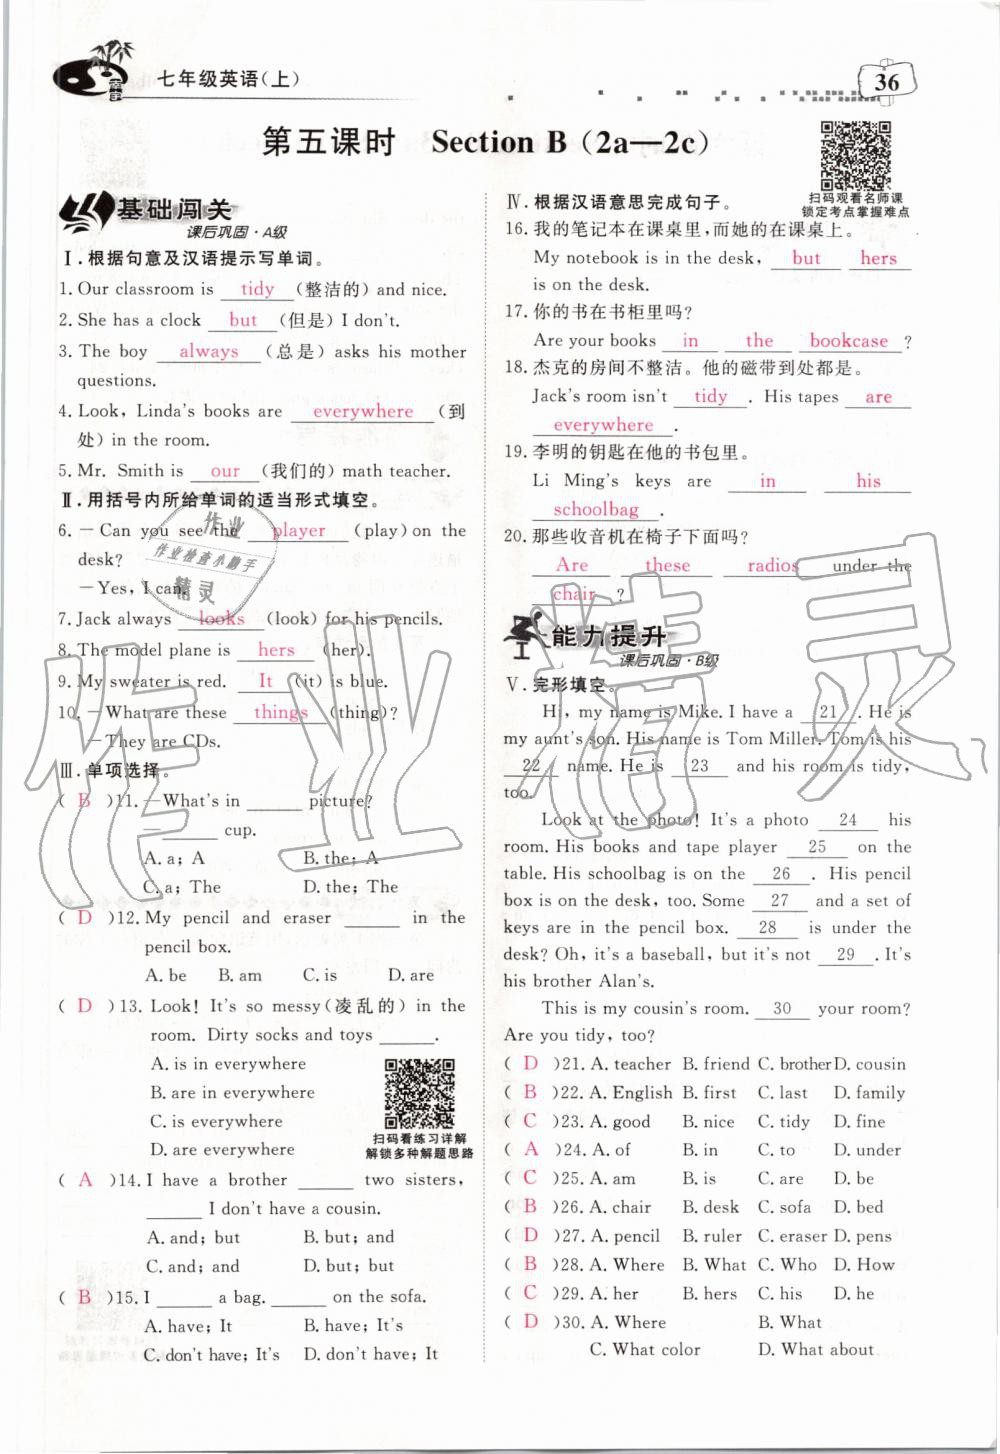 七年级英语(上)
36
第五课时 Section B (2a—2c)
扫码观看名师课
锁定考点掌握难点
基础闯关
课后巩固·A级
Ⅰ.根据句意及汉语提示写单词。
1. Our classroom is tidy (整洁的) and nice.
2. She has a clock but (但是) I don't.
3. The boy always (总是) asks his mother
questions.
4. Look, Linda's books are everywhere (到
处) in the room.
5. Mr. Smith is our (我们的) math teacher.
Ⅱ.用括号内所给单词的适当形式填空。
6. —Can you see the player (play) on the
desk?
—Yes, I can.
7. Jack always looks (look) for his pencils.
8. The model plane is hers (her).
9. My sweater is red. It (it) is blue.
10. —What are these things (thing)?
—They are CDs.
Ⅲ.单项选择。
( B )11. —What's in ______ picture?
—______ cup.
A. a; A B. the; A
C. a; The D. the; The
( D )12. My pencil and eraser ______ in the
pencil box.
A. be B. am C. is D. are
( D )13. Look! It's so messy(凌乱的) in the
room. Dirty socks and toys ______.
A. is in everywhere
B. are in everywhere
C. is everywhere
D. are everywhere
扫码看练习详解
解锁多种解题思路
( A )14. I have a brother ______ two sisters,
______ I don't have a cousin.
A. and; but B. but; and
C. and; and D. but; but
( B )15. I ______ a bag. ______ on the sofa.
A. have; It B. have; It's
C. don't have; It's D. don't have; It
Ⅳ.根据汉语意思完成句子。
16. 我的笔记本在课桌里,而她的在课桌上。
My notebook is in the desk, but hers
is on the desk.
17. 你的书在书柜里吗?
Are your books in the bookcase ?
18. 杰克的房间不整洁。他的磁带到处都是。
Jack's room isn't tidy . His tapes are
everywhere .
19. 李明的钥匙在他的书包里。
Li Ming's keys are in his
schoolbag .
20. 那些收音机在椅子下面吗?
Are these radios under the
chair ?
能力提升
课后巩固·B级
Ⅴ.完形填空。
Hi, my name is Mike. I have a 21 . He is
my aunt's son. His name is Tom Miller. Tom is his
22 name. He is 23 and his room is tidy,
too.
Look at the photo! It's a photo 24 his
room. His books and tape player 25 on the
table. His schoolbag is on the 26 . His pencil
box is on the desk, too. Some 27 and a set of
keys are in the pencil box. 28 is under the
desk? Oh, it's a baseball, but it's not 29 . It's
his brother Alan's.
This is my cousin's room. 30 your room?
Are you tidy, too?
( D )21. A. teacher B. friend C. brother D. cousin
( B )22. A. English B. first C. last D. family
( C )23. A. good B. nice C. tidy D. fine
( A )24. A. of B. in C. to D. under
( C )25. A. am B. is C. are D. be
( B )26. A. chair B. desk C. sofa D. bed
( D )27. A. pencil B. ruler C. eraser D. pens
( B )28. A. Where B. What C. Who D. How
( C )29. A. her B. hers C. his D. he
( D )30. A. Where B. What
C. What color D. What about
作业
作业检查小助手
精灵
作业精灵